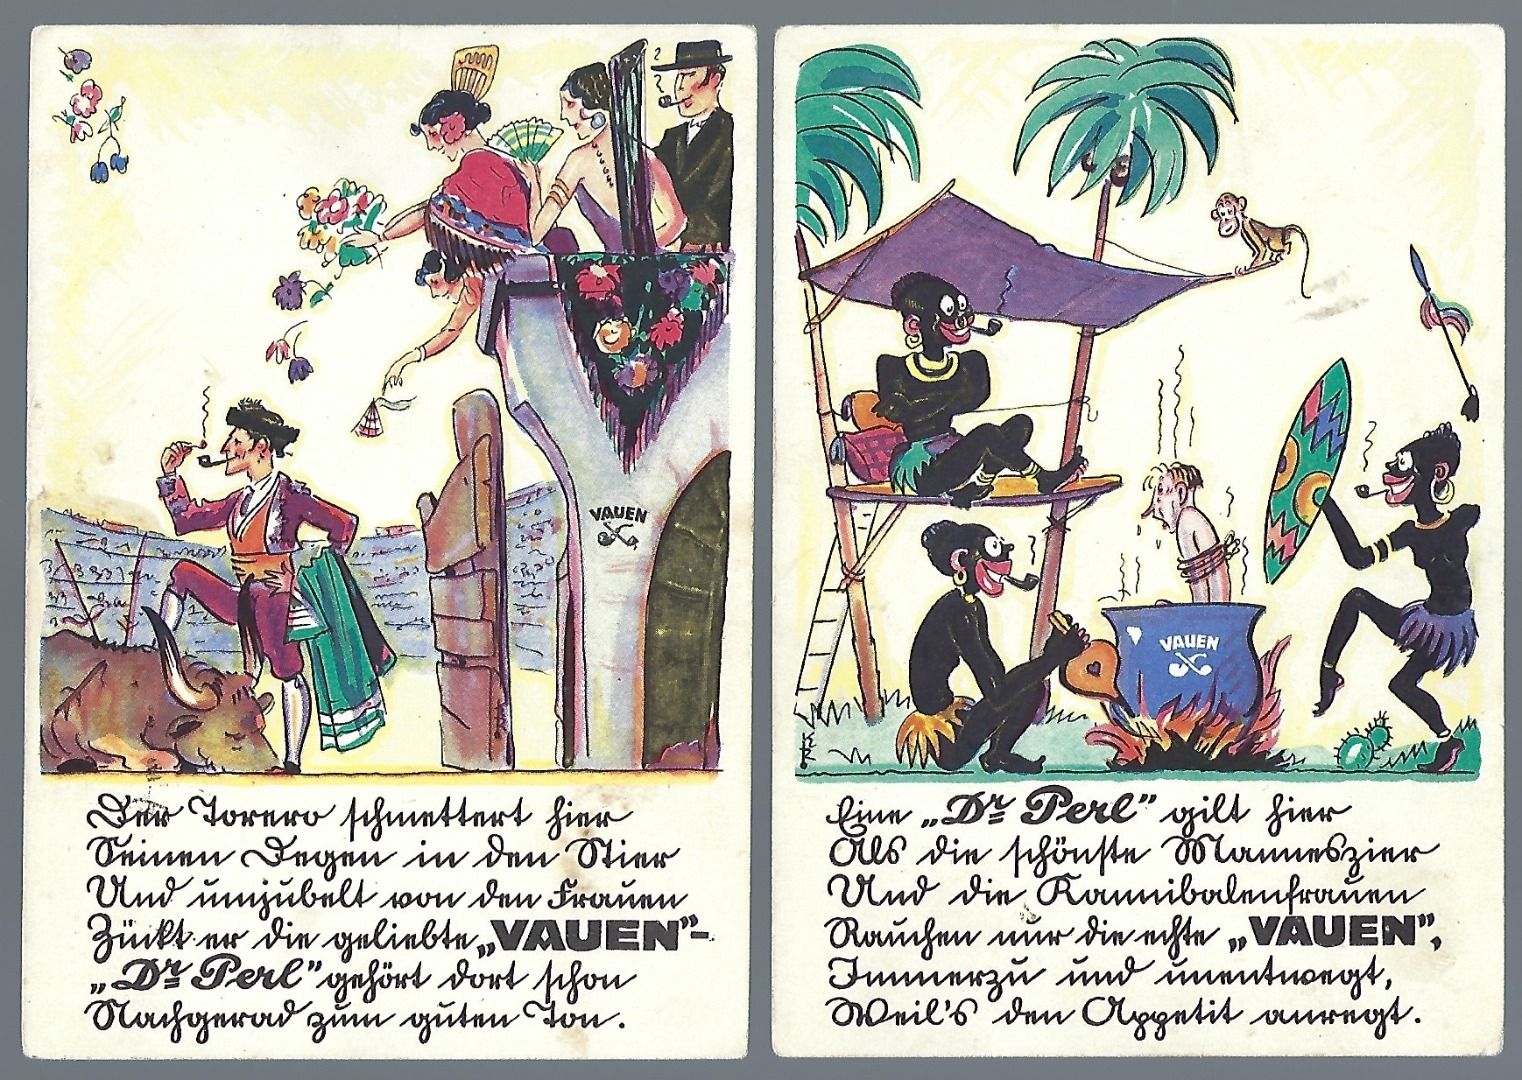 VAUEN
Der Torero schmettert hier
Seinen Degen in den Stier
Und umjubelt von den Frauen
Zückt er die geliebte „VAUEN”-
„Dr Perl” gehört dort schon
Nachgerad zum guten Ton.
VAUEN
Eine „Dr Perl” gilt hier
Als die schönste Manneszier
Und die Kannibalenfrauen
Rauchen nur die echte „VAUEN”,
Immerzu und unentwegt,
Weil's den Appetit anregt.